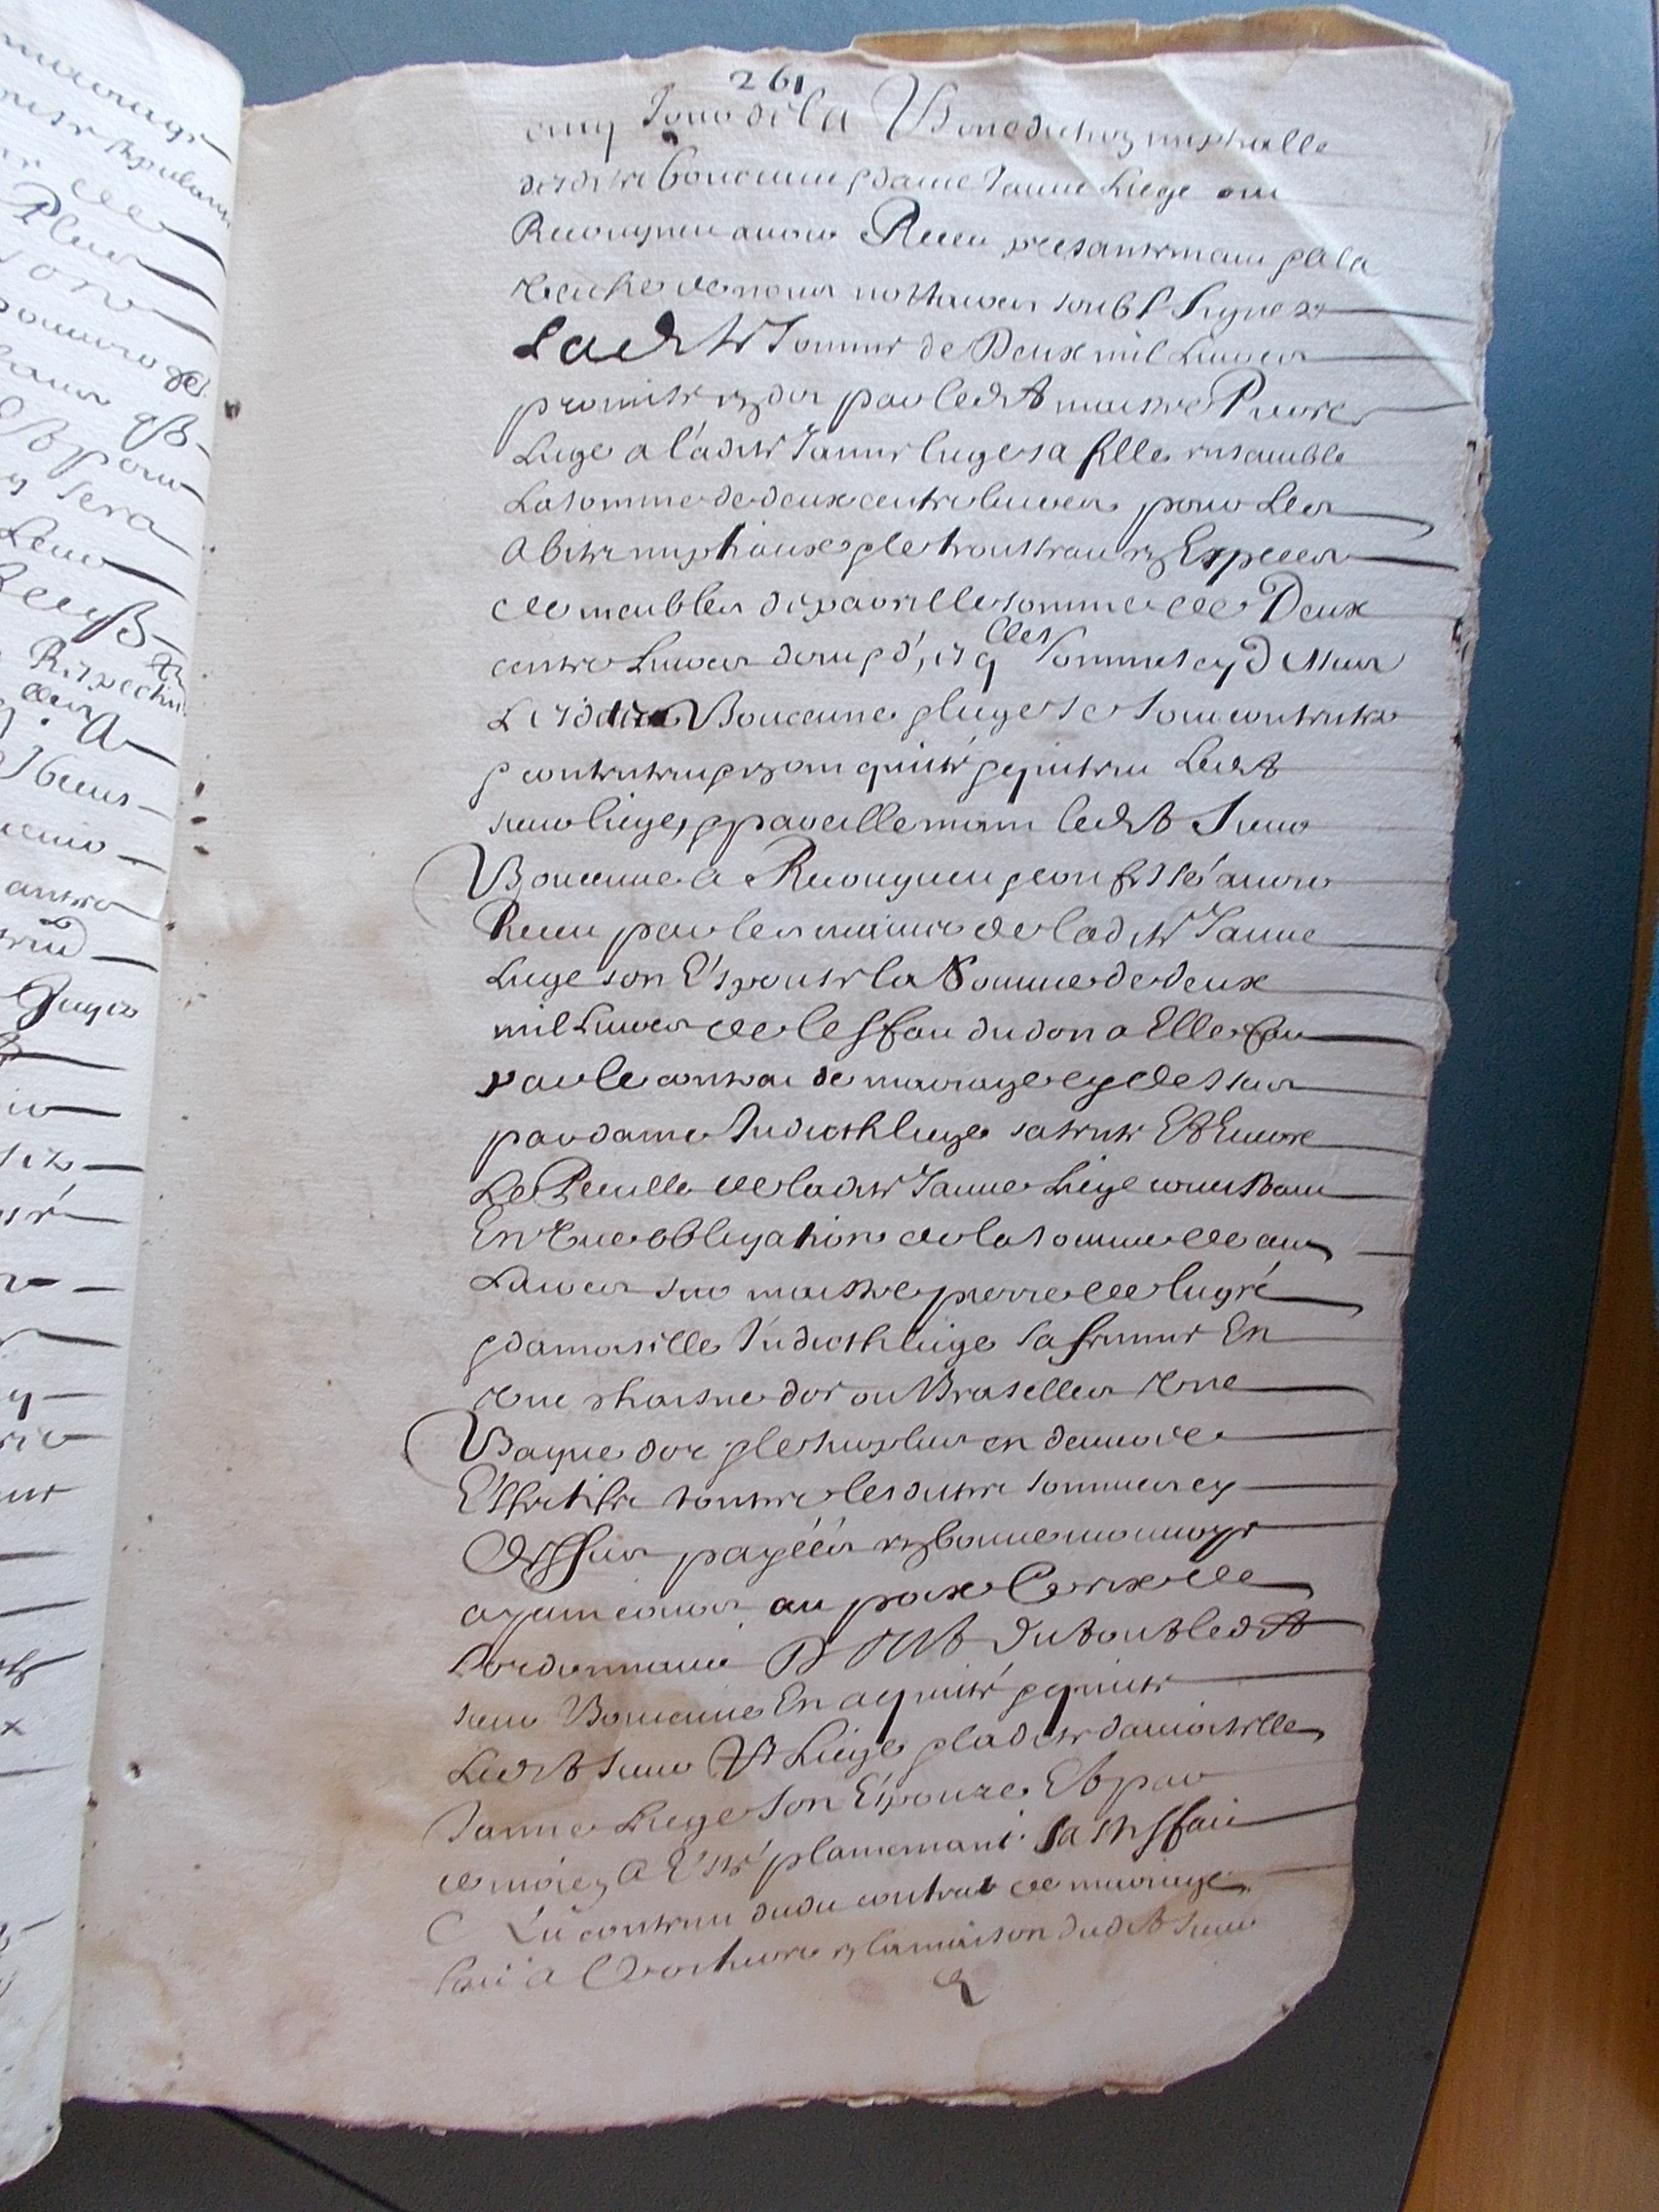 261
cinq jour de la Benediction nuptialle
desdits Boucanne & dame Janne Liege ont
Recougneu auoir Receu presantemant & a la
veue de nous nottaires soubs signez
Ladite Somme de Deux mil Liures
promise en dot par ledit maistre Pierre
Liege a ladite Janne liege sa fille ensamble
La somme de deux cents liures pour Les
abits nuptiaux & le troussau en Especes
de meubles de parrille somme de Deux
cents Liures
lles
sommes cy dessus
Lesdits Boucanne & liege se sont contantés
& contantent & en ont quitté & quittent Ledit
sieur liege, & pareillemant ledit Sieur
Boucanne a Recougneu & confessé auoir
Receu par les mains de ladite Janne
Liege son Espouse la Somme de deux
mil Liures de leffait du don a Elle fait
par le contrat de mariage cy dessus
par dame Judicth liege sa tante Et Encore
Le Peculle de ladite Janne Liege concistant
En vne obligation de la somme de cent
Liures sur maistre pierre de lugré
& damoiselle Judicth liege sa femme En
vne chaisne dor ou Braselles vne
Bague dor & le surplus en deniers
Effectifs toutes lesdites sommes cy
dessus payéés en bonne monnoye
ayant cours au prix Cours de
lordonnance Et du tout ledit
sieur Boucanne En a quitté & quitte
Ledit sieur Liege & ladite damoiselle
Janne Liege son Espouze Et par
ce moien a Esté plainemant satisffait
au contenu dudit contrat de mariage
fait a en la maison dudit sieur